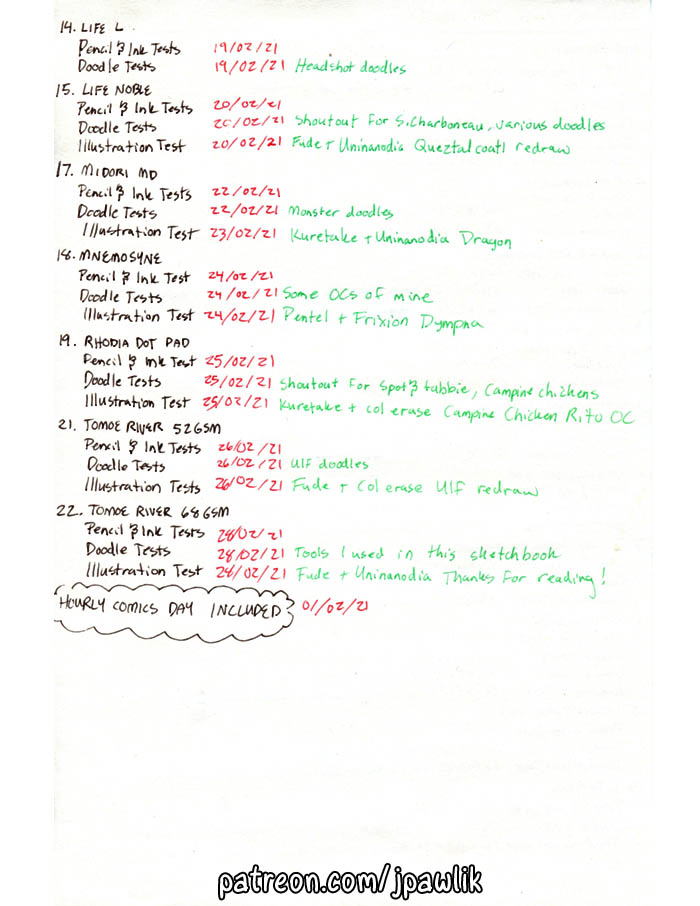 14. LIFE L
Pencil & Ink Tests 19/02/21
Doodle Tests 19/02/21 Headshot doodles
15. LIFE NOBLE
Pencil & Ink Tests 20/02/21
Doodle Tests 20/02/21 Shoutout For S. Charboneau, various doodles
Illustration Test 20/02/21 Fude + Uninanodia Queztalcoatl redraw
17. MIDORI MD
Pencil & Ink Tests 22/02/21
Doodle Tests 22/02/21 Monster doodles
Illustration Test 23/02/21 Kuretake + Uninanodia Dragon
18. MNEMOSYNE
Pencil & Ink Test 24/02/21
Doodle Tests 24/02/21 Some OCs of mine
Illustration Test 24/02/21 Pentel + Frixion Dympna
19. RHODIA DOT PAD
Pencil & Ink Test 25/02/21
Doodle Tests 25/02/21 Shoutout For Spot & tubbie, Campine chickens
Illustration Test 25/02/21 Kuretake + col erase Campine Chicken Rito OC
21. TOMOE RIVER 52GSM
Pencil & Ink Tests 26/02/21
Doodle Tests 26/02/21 Ulf doodles
Illustration Tests 26/02/21 Fude + Col erase Ulf redraw
22. TOMOE RIVER 68GSM
Pencil & Ink Tests 28/02/21
Doodle Tests 28/02/21 Tools I used in this sketchbook
Illustration Test 28/02/21 Fude + Uninanodia Thanks For reading!
HOURLY COMICS DAY INCLUDED 01/02/21
patreon.com/jpawlik